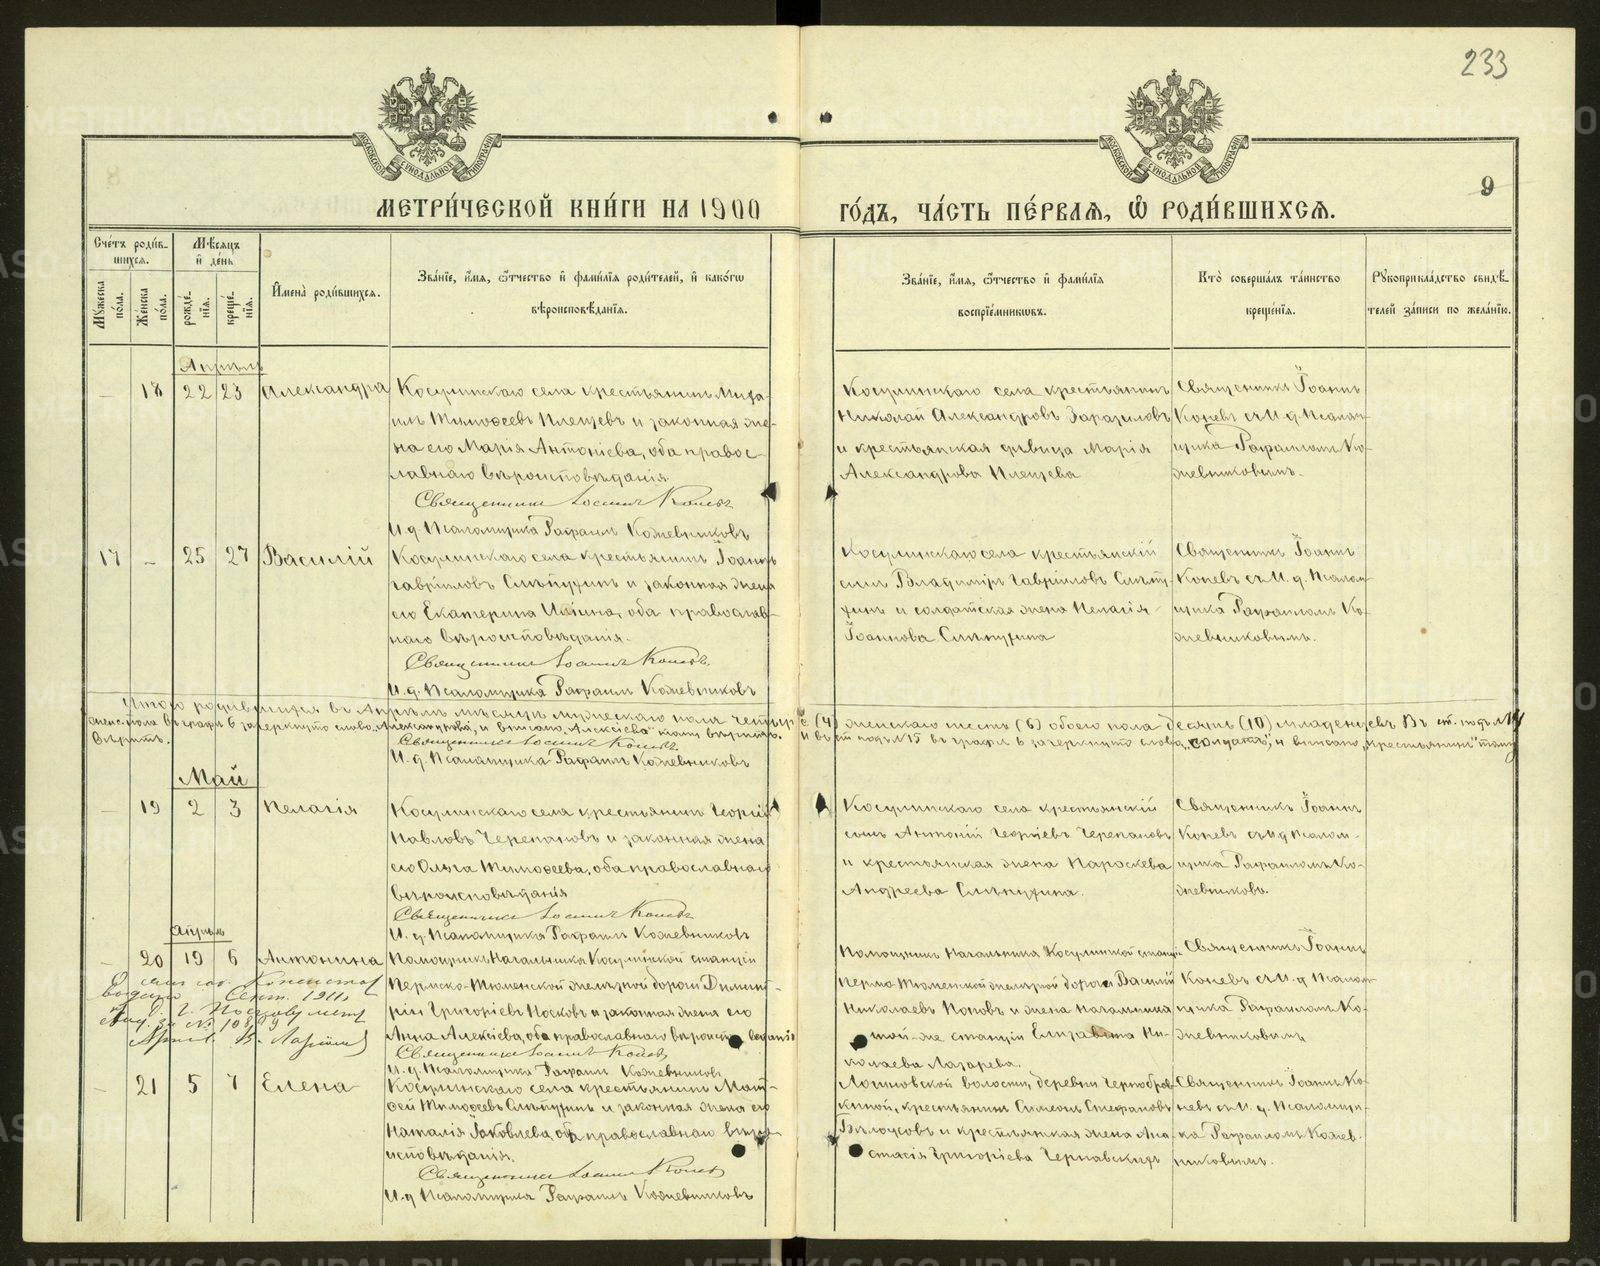 233
9
МЕТРИ́ЧЕСКОЙ КНИ́ГИ НА 1900
ГО́ДЪ, ЧА́СТЬ ПЕ́РВАѦ, Ѽ РОДИ́ВШИХСѦ.
Сче́тъ роди́в-
шихсѧ.
Мѣ́сѧцъ
и҆ де́нь
Мꙋ́жеска по́ла.
Же́нска по́ла.
рожде́-
нїѧ.
креще́-
нїѧ.
И҆мена̀ роди́вшихсѧ.
Зва́нїе, и҆́мѧ, ѻ҆́тчество и҆ фами́лїѧ роди́телей, и҆ како́гѡ
вѣроисповѣ́данїѧ.
Зва́нїе, и҆́мѧ, ѻ҆́тчество и҆ фами́лїѧ
воспрїе́мникѡвъ.
Кто̀ соверша́лъ та́инство
креще́нїѧ.
Рꙋкоприкла́дство свидѣ́-
телей за́писи по жела́нїю.
Апрѣль
— 18 22 23 Александра
Косулинскаго села крестьянинъ Миха-
илъ Тимофеевъ Плещевъ и законная же-
на его Марія Антоніева, оба правос-
лавнаго вѣроисповѣданія.
Священникъ Іоаннъ Коневъ
И. д. Псаломщика Рафаилъ Кожевниковъ
Косулинскаго села крестьянинъ
Николай Александровъ
и крестьянская дѣвица Марія
Александрова Плещева
Священникъ Іоаннъ
Коневъ съ И. д. Псалом-
щика Рафаиломъ Ко-
жевниковымъ.
17 — 25 27 Василій
Косулинскаго села крестьянинъ Іоаннъ
Гавріиловъ Слѣпухинъ и законная жена
его Екатерина оба православ-
наго вѣроисповѣданія.
Священникъ Іоаннъ Коневъ.
И. д. Псаломщика Рафаилъ Кожевниковъ
Косулинскаго села крестьянскій
сынъ Владиміръ Гавріиловъ Слѣпу-
хинъ и солдатская жена Пелагія
Іоаннова Слѣпухина
Священникъ Іоаннъ
Коневъ съ И. д. Псалом-
щика Рафаиломъ Ко-
жевниковымъ.
Итого родившихся въ Апрѣлѣ мѣсяцѣ мужескаго пола четыре (4) женскаго шесть (6) обоего пола десять (10) младенцевъ. Въ ст. подъ №14
женс. пола въ графѣ 6 зачеркнуто слово и вписано „Алексіева“ тому вѣрить. И въ ст. подъ №15 въ графѣ 6 зачеркнуто слово „солдатъ“, и вписано „крестьянинъ“ тому
вѣрить.
Священникъ Іоаннъ Коневъ.
И. д. Псаломщика Рафаилъ Кожевниковъ
Май
— 19 2 3 Пелагія
Косулинскаго села крестьянинъ Георгій
Павловъ Черепановъ и законная жена
его Ольга Тимофеева, оба православнаго
вѣроисповѣданія
Священникъ Іоаннъ Коневъ
И. д. Псаломщика Рафаилъ Кожевниковъ
Косулинскаго села крестьянскій
сынъ Антоній Георгіевъ Черепановъ
и крестьянская жена Параскева
Андреева Слѣпухина.
Священникъ Іоаннъ
Коневъ съ и. д. Псалом-
щика Рафаиломъ Ко-
жевниковъ.
Апрѣль
— 20 19 6 Антонина
Сент. 1911
Помощникъ Начальника Косулинской станціи
Пермско-Тюменской желѣзной дороги Димит-
рій Григоріевъ Носковъ и законная жена его
Анна Алексіева, оба православнаго вѣроисповѣданія
Священникъ Іоаннъ Коневъ
И. д. Псаломщика Рафаилъ Кожевниковъ.
Помощникъ Начальника Косулинской станціи
Пермо-Тюменской желѣзной дороги Василій
Николаевъ Поповъ и жена Начальника
той-же станціи Елизавета Ни-
колаева Лазарева.
Священникъ Іоаннъ
Коневъ съ И. д. Псалом-
щика Рафаиломъ Ко-
жевниковымъ
— 21 5 7 Елена
Косулинскаго села крестьянинъ Мат-
фей Тимофеевъ Слѣпухинъ и законная жена его
Наталія Іаковлева, оба православнаго вѣро-
исповѣданія.
Священникъ Іоаннъ Коневъ
И. д. Псаломщика Рафаилъ Кожевниковъ
волости, деревни
крестьянинъ Симеонъ Стефановъ
Бѣлоусовъ и крестьянская жена Ана-
стасія Григоріева
Священникъ Іоаннъ Ко-
невъ съ И. д. Псаломщи-
ка Рафаиломъ Кожев-
никовымъ.